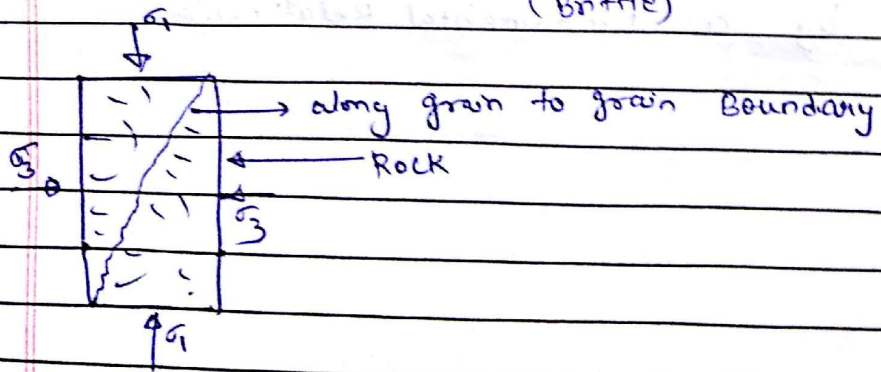 (Brittle)
σ₁
along grain to grain Boundary
Rock
σ₃
σ₃
σ₁